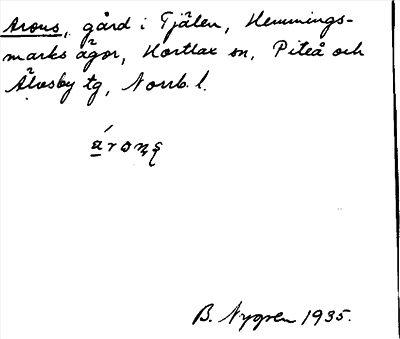 Arons, gård i Tjälen, Hemmings-
marks ägor, Hortlax sn, Piteå och
Älvsby tg, Norrb. l.
B. Nygren 1935.